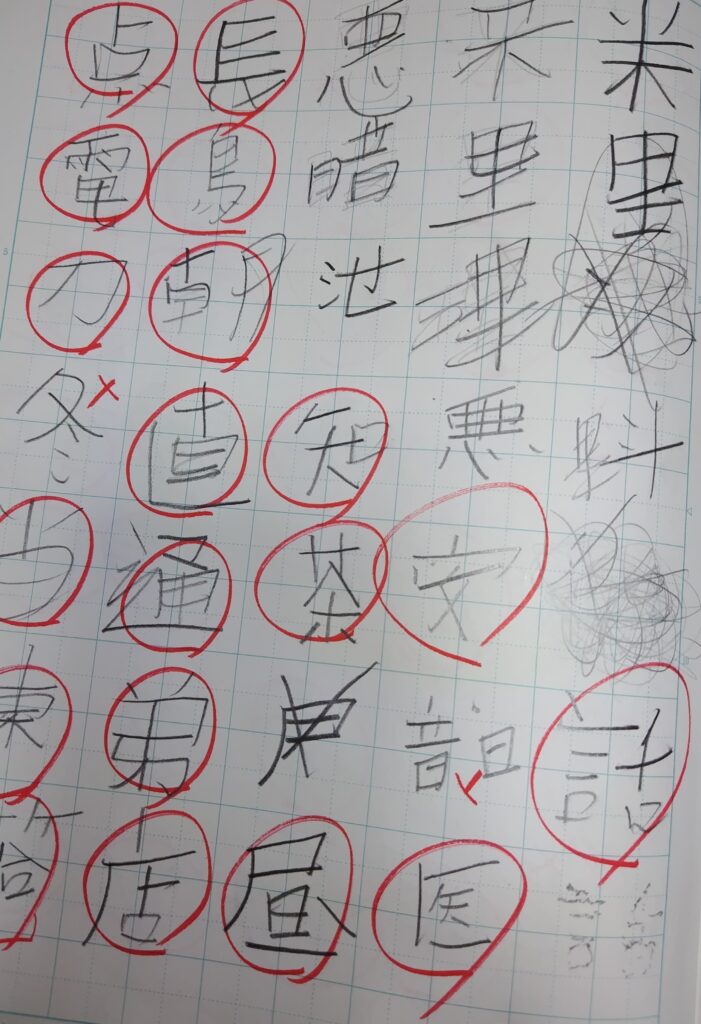 米里話
里理悪安医
悪暗池知茶昼
長鳥朝直通弟店
点電刀冬当東答